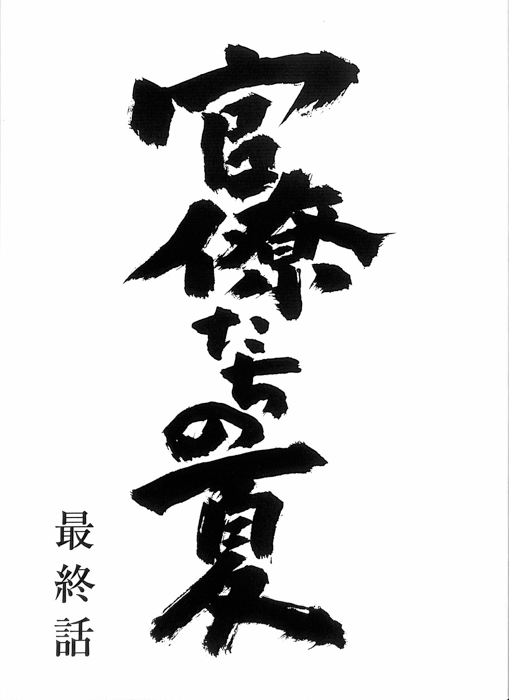 官僚たちの夏
最終話